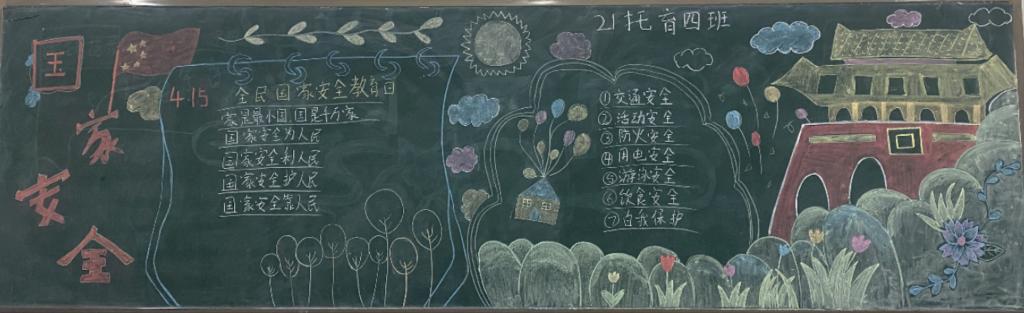 国家安全
21托育四班
4.15 全民国家安全教育日
家是最小国 国是千万家
国家安全为人民
国家安全利人民
国家安全护人民
国家安全靠人民
①交通安全
②活动安全
③防火安全
④用电安全
⑤游泳安全
⑥饮食安全
⑦自我保护